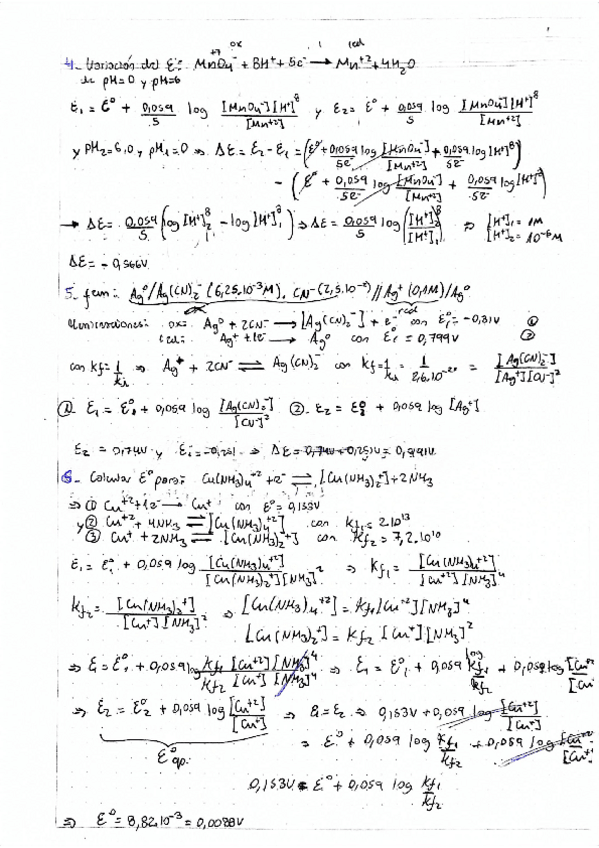 +7 ox 1 red
4- Variación del E°: MnO4⁻ + 8H⁺ + 5e⁻ → Mn⁺² + 4H2O
de pH=0 y pH=6
E1 = E° + 0,059/5 log [MnO4⁻][H⁺]⁸/[Mn⁺²] y E2 = E° + 0,059/5 log [MnO4⁻][H⁺]⁸/[Mn⁺²]
y pH2=6,0 y pH1=0 ⇒ ΔE = E2 - E1 = (E° + 0,059/5e⁻ log [MnO4⁻]/[Mn⁺²] + 0,059/5e⁻ log [H⁺]⁸)
- (E° + 0,059/5e⁻ log [MnO4⁻]/[Mn⁺²] + 0,059/5e⁻ log [H⁺]⁸)
→ ΔE = 0,059/5 (log [H⁺]₂⁸ - log [H⁺]₁⁸) ⇒ ΔE = 0,059/5 log ([H⁺]₂/[H⁺]₁)⁸ ⇒ [H⁺]₁ = 1M
[H⁺]₂ = 10⁻⁶M
ΔE = -0,566V
5- fem: Ag°/Ag(CN)2⁻ (6,25.10⁻³M), CN⁻ (2,5.10⁻²) // Ag⁺ (0,1M)/Ag°
ox: Ag° + 2CN⁻ → [Ag(CN)2⁻] + e⁻ con E1° = -0,31V ①
red: Ag⁺ + 1e⁻ → Ag° con E° = 0,799V ②
con Kf = 1/Ki ⇒ Ag⁺ + 2CN⁻ ⇌ Ag(CN)2⁻ con Kf = 1/Ki = [Ag(CN)2⁻]/[Ag⁺][CN⁻]²
① E1 = E1° + 0,059 log [Ag(CN)2⁻]/[CN⁻]² ② E2 = E2° + 0,059 log [Ag⁺]
E2 = 0,74V y E1 = -0,251 ⇒ ΔE = 0,74V + 0,251V = 0,991V
6- Calcular E° para: Cu(NH3)4⁺² + e⁻ ⇌ [Cu(NH3)2⁺] + 2NH3
⇒ ① Cu⁺² + 1e⁻ → Cu⁺ con E° = 0,153V
y ② Cu⁺² + 4NH3 ⇌ [Cu(NH3)4⁺²] con Kf1 = 2.10¹³
③ Cu⁺ + 2NH3 ⇌ [Cu(NH3)2⁺] con Kf2 = 7,2.10¹⁰
E1 = E1° + 0,059 log [Cu(NH3)4⁺²]/[Cu(NH3)2⁺][NH3]² ⇒ Kf1 = [Cu(NH3)4⁺²]/[Cu⁺²][NH3]⁴
Kf2 = [Cu(NH3)2⁺]/[Cu⁺][NH3]² ⇒ [Cu(NH3)4⁺²] = Kf1 [Cu⁺²][NH3]⁴
[Cu(NH3)2⁺] = Kf2 [Cu⁺][NH3]²
⇒ E1 = E1° + 0,059 log Kf1 [Cu⁺²][NH3]⁴/Kf2 [Cu⁺][NH3]⁴ ⇒ E1 = E1° + 0,059 log Kf1/Kf2 + 0,059 log [Cu⁺²]/[Cu
⇒ E2 = E2° + 0,059 log [Cu⁺²]/[Cu⁺] ⇒ E1 = E2 ⇒ 0,153V + 0,059 log [Cu⁺²]/[Cu⁺]
= E° + 0,059 log Kf1/Kf2 + 0,059 log [Cu⁺²]/[Cu⁺]
0,153V = E° + 0,059 log Kf1/Kf2
⇒ E° = 8,82.10⁻³ = 0,0088V